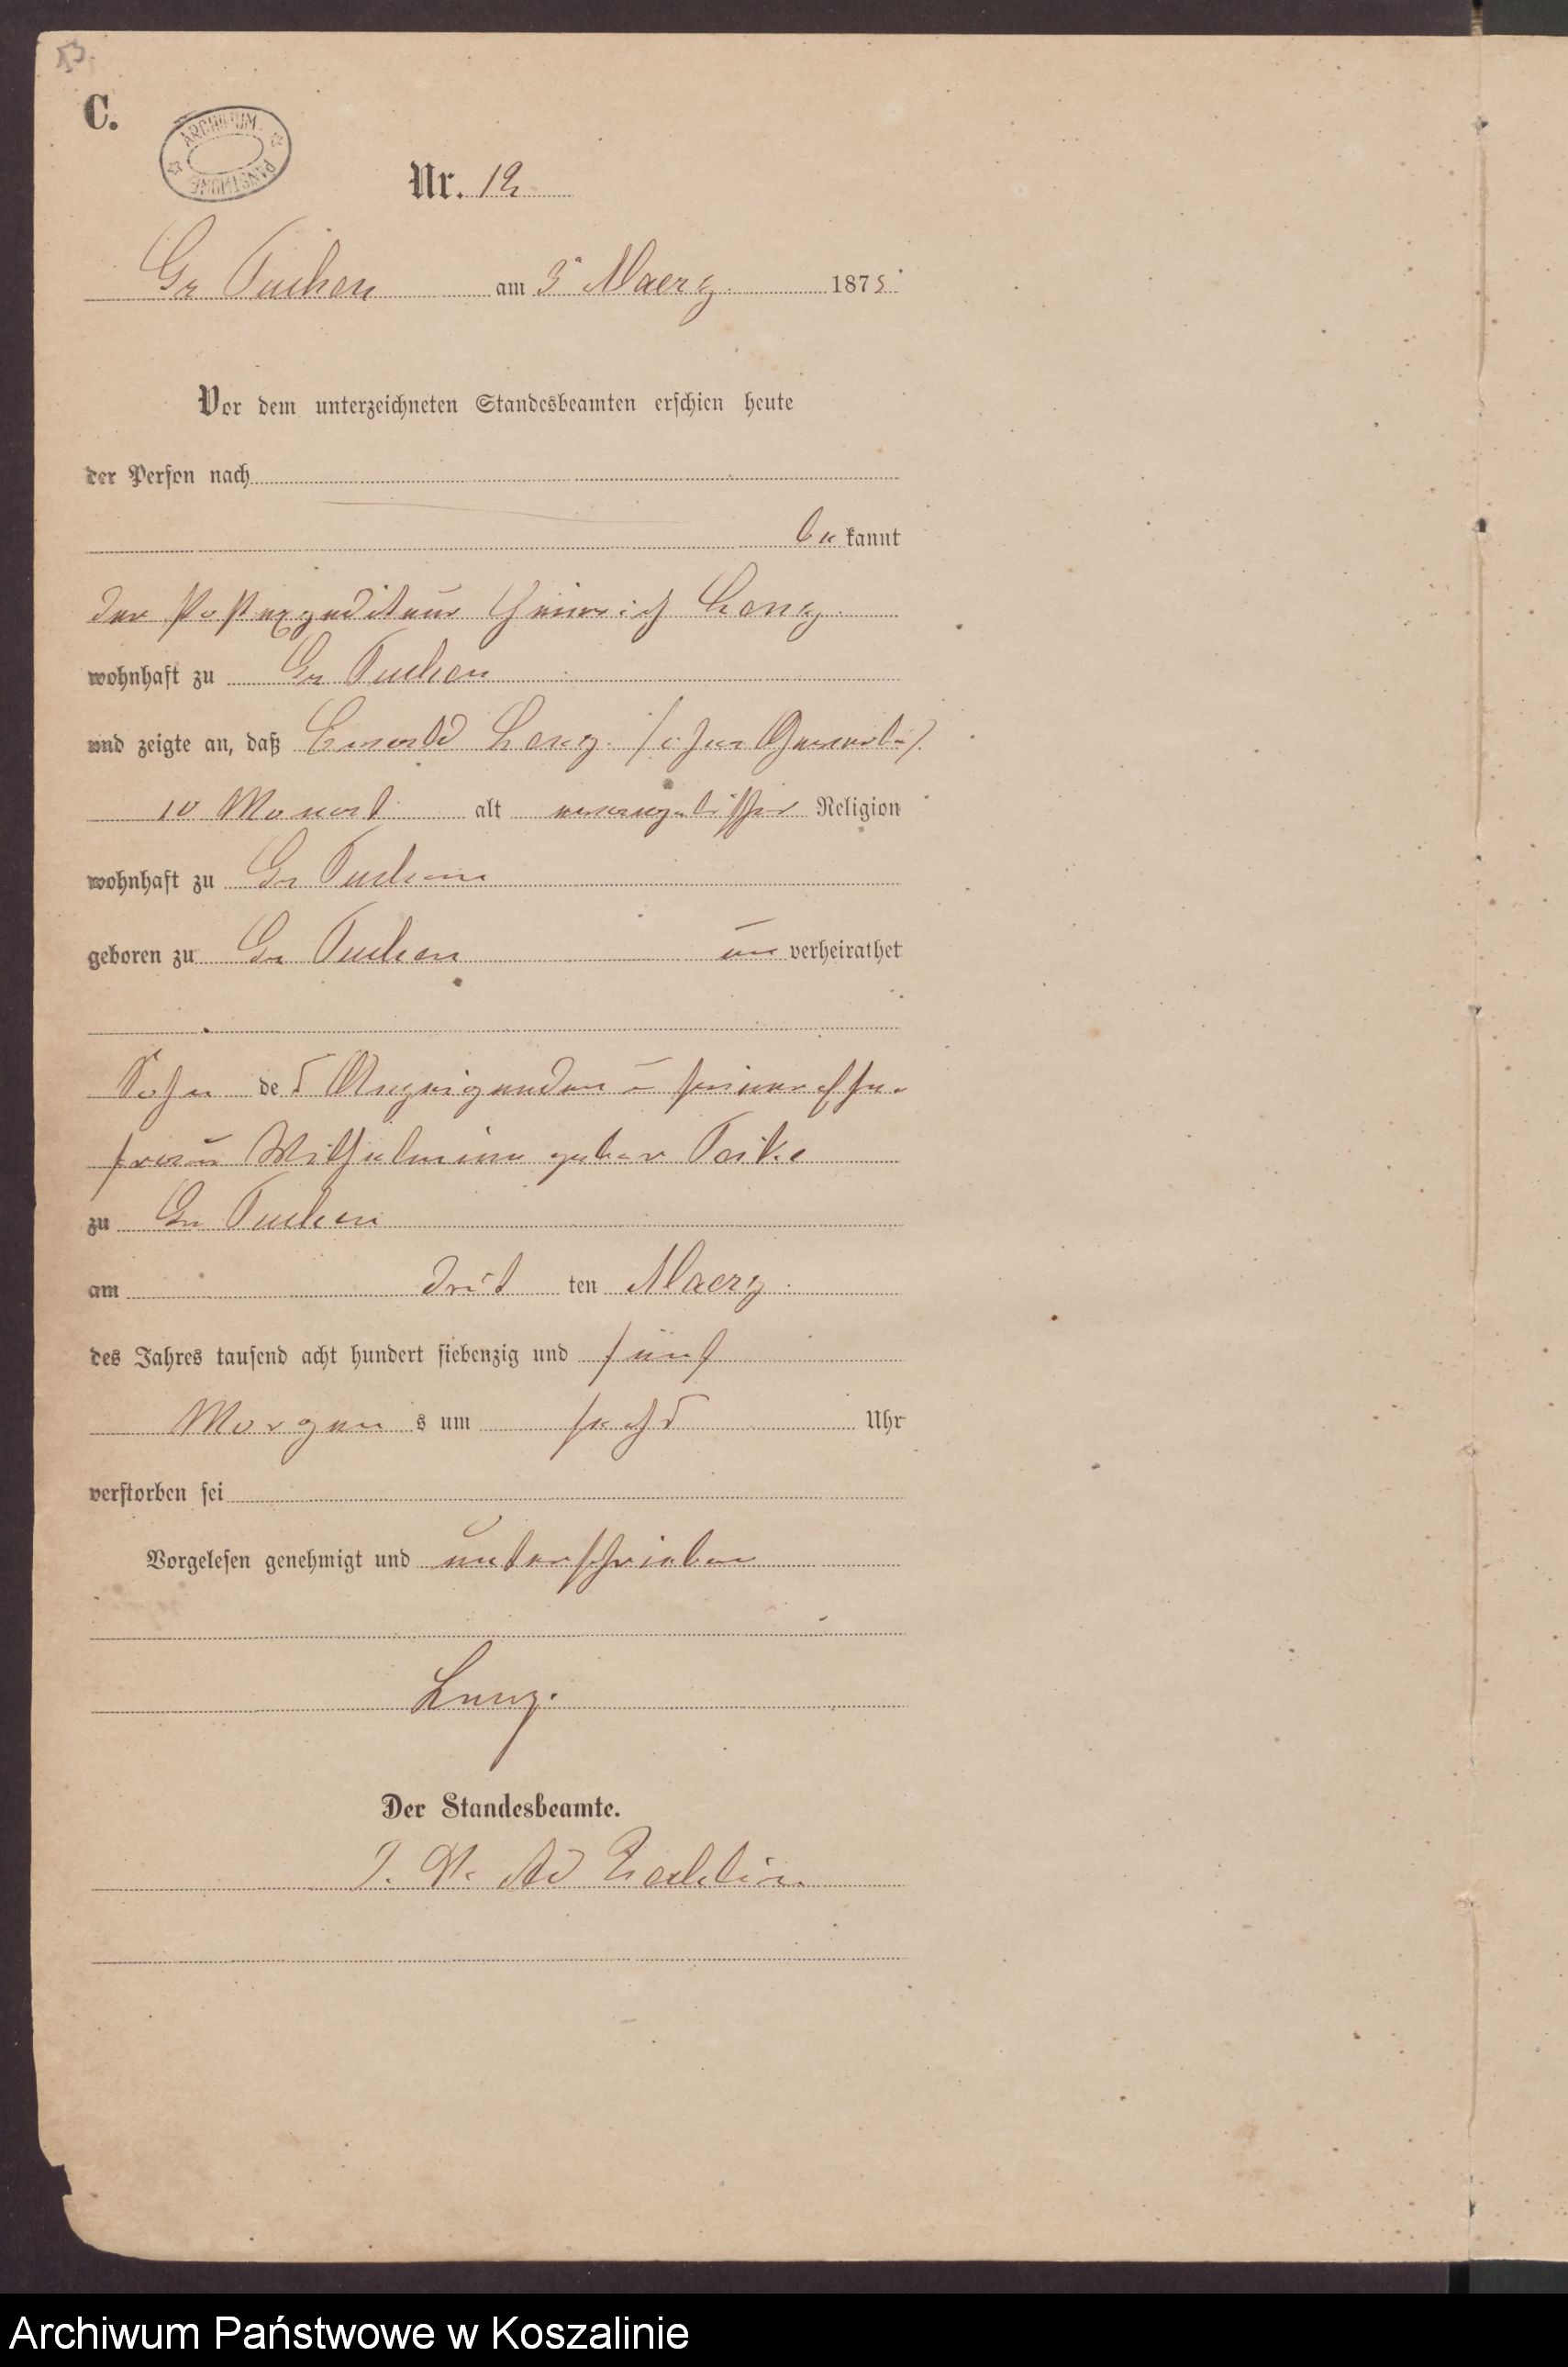 53.
C.
ARCHIWUM PAŃSTWOWE
Nr. 12
Gr Tuchen am 3 Maerz 1875
Vor dem unterzeichneten Standesbeamten erschien heute
der Person nach
be kannt
der Postexpediteur Heinrich Lenz
wohnhaft zu Gr Tuchen
und zeigte an, daß Lenz
10 Monat alt evangelischer Religion
wohnhaft zu Gr Tuchen
geboren zu Gr Tuchen un verheirathet
Sohn des Anzeigenden u seiner Ehe
frau Wilhelmine geber
zu Gr Tuchen
am drit ten Maerz
des Jahres tausend acht hundert siebenzig und fünf
Morgen s um sechs Uhr
verstorben sei
Vorgelesen genehmigt und unterschrieben
Lenz.
Der Standesbeamte.
J. V.
Archiwum Państwowe w Koszalinie